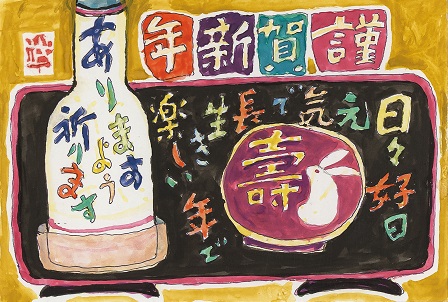 謹賀新年
日々好日
元気で長生き
楽しい年で
あります
よう
祈ります